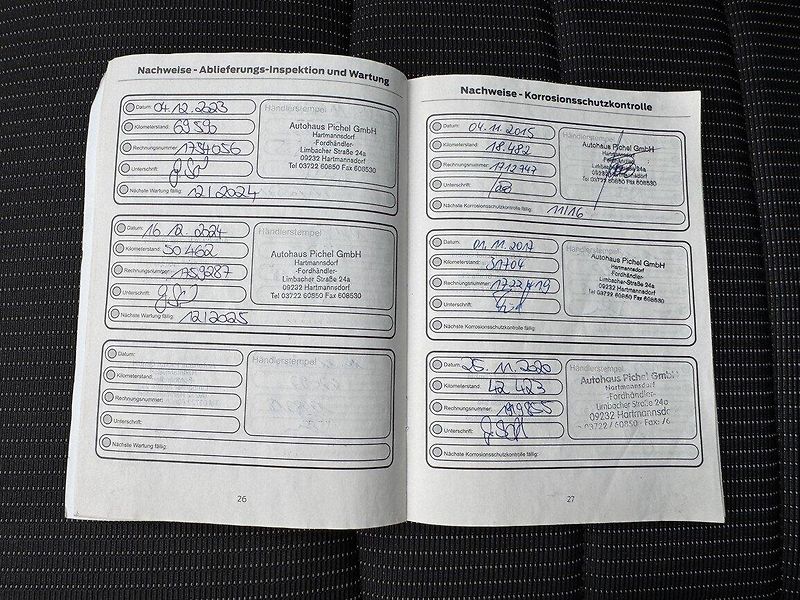 Nachweise - Ablieferungs-Inspektion und Wartung
Datum: 04.12.2023
Kilometerstand:
Rechnungsnummer: 1734056
Unterschrift:
Nächste Wartung fällig: 12/2024
Händlerstempel
Autohaus Pichel GmbH
Hartmannsdorf
-Fordhändler-
Limbacher Straße 24a
09232 Hartmannsdorf
Tel 03722 60850 Fax 608530
Datum: 16.12.2024
Kilometerstand: 50462
Rechnungsnummer: 1759287
Unterschrift:
Nächste Wartung fällig: 12/2025
Händlerstempel
Autohaus Pichel GmbH
Hartmannsdorf
-Fordhändler-
Limbacher Straße 24a
09232 Hartmannsdorf
Tel 03722 60850 Fax 608530
Datum:
Kilometerstand:
Rechnungsnummer:
Unterschrift:
Nächste Wartung fällig:
Händlerstempel
26
Nachweise - Korrosionsschutzkontrolle
Datum: 04.11.2015
Kilometerstand: 18.482
Rechnungsnummer: 1712747
Unterschrift:
Nächste Korrosionsschutzkontrolle fällig: 11/16
Händlerstempel
Autohaus Pichel GmbH
Hartmannsdorf
-Fordhändler-
Limbacher Straße 24a
09232 Hartmannsdorf
Tel 03722 60850 Fax 608530
Datum: 01.11.2017
Kilometerstand: 31704
Rechnungsnummer:
Unterschrift:
Nächste Korrosionsschutzkontrolle fällig:
Händlerstempel
Autohaus Pichel GmbH
Hartmannsdorf
-Fordhändler-
Limbacher Straße 24a
09232 Hartmannsdorf
Tel 03722 60850 Fax 608530
Datum: 25.11.2020
Kilometerstand: 42423
Rechnungsnummer:
Unterschrift:
Nächste Korrosionsschutzkontrolle fällig:
Händlerstempel
Autohaus Pichel GmbH
Hartmannsdorf
-Fordhändler-
Limbacher Straße 24a
09232 Hartmannsdorf
03722 / 60850 - Fax: /6
27